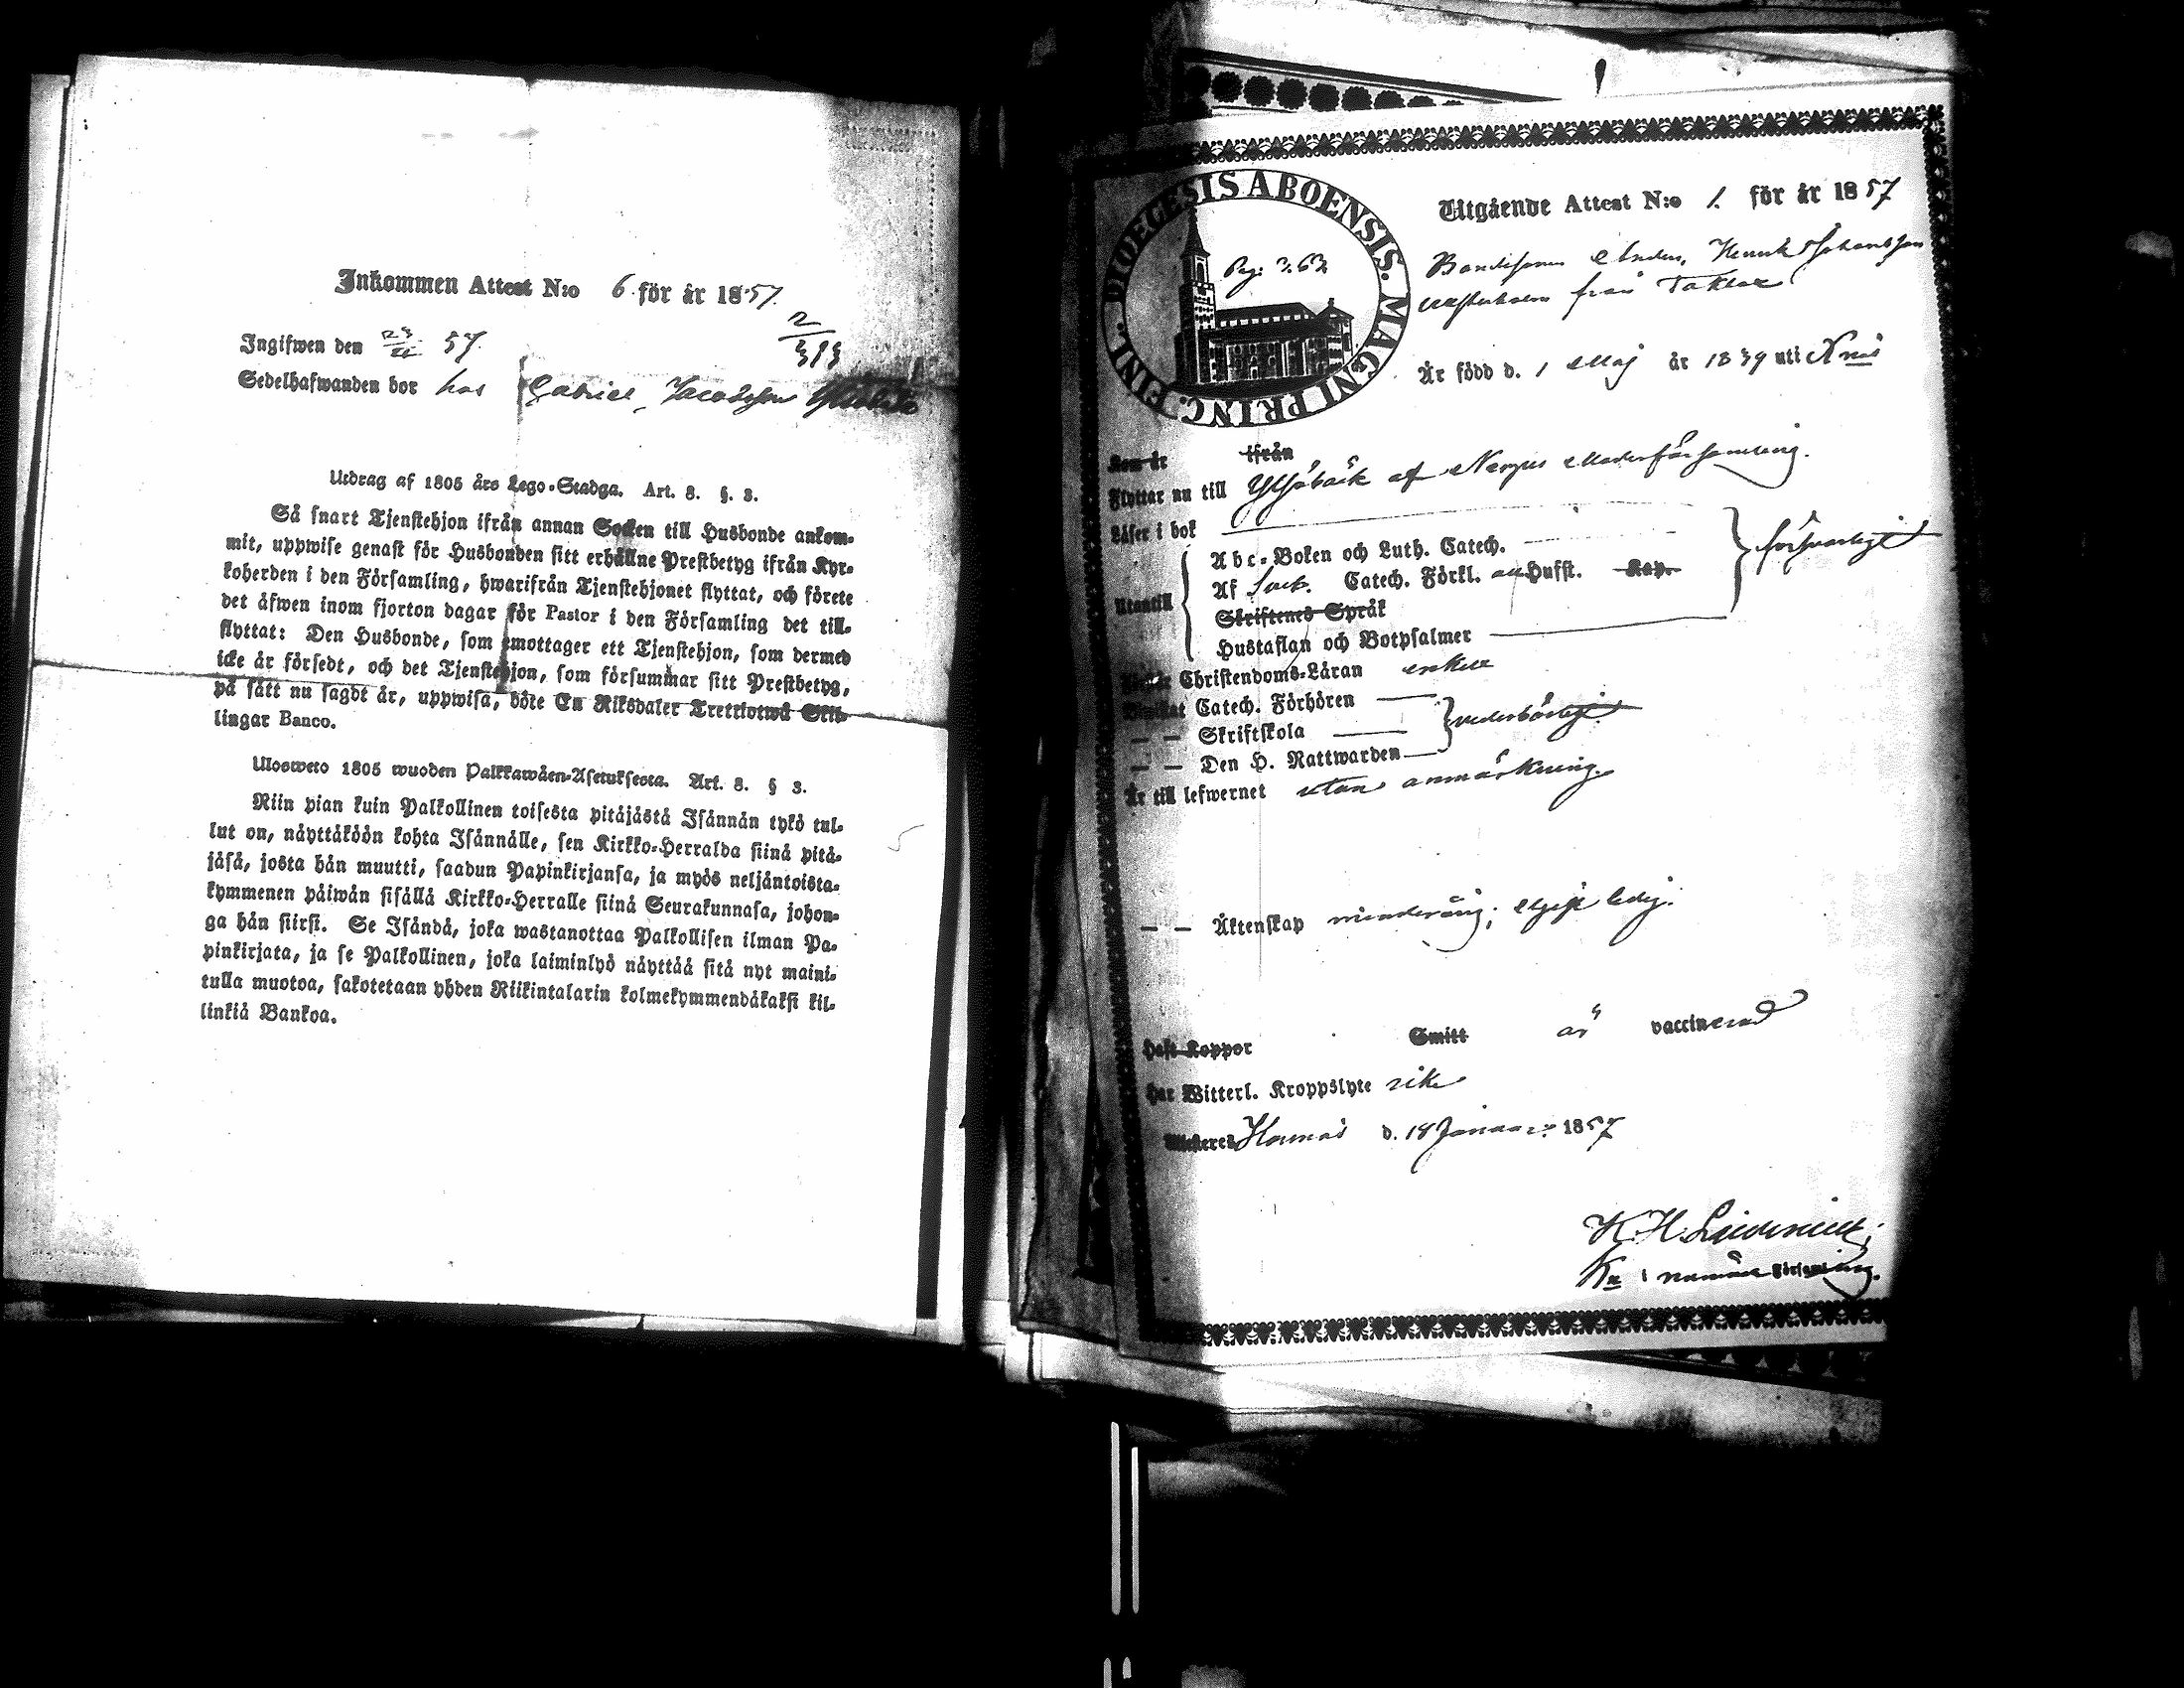 Inkommen Attest N:o 6 för år 1857.
2
Ingifwen den 57.
Sedelhafwanden bor hos Gabriel Jacobsson
Utdrag af 1805 års Lego-Stadga. Art. 8. §. 3.
Så snart Tjenstehjon ifrån annan Socken till Husbonde ankom-
mit, uppwise genast för Husbonden sitt erhållne Prestbetyg ifrån Kyr-
koherden i den Församling, hwarifrån Tjenstehjonet flyttat, och förete
det äfwen inom fjorton dagar för Pastor i den Församling det till-
flyttat: Den Husbonde, som emottager ett Tjenstehjon, som dermed
icke är försedt, och det Tjenstehjon, som försummar sitt Prestbetyg,
på sätt nu sagdt är, uppwisa, böte En Riksdaler Trettiotwå Skil-
lingar Banco.
Ulosweto 1805 wuoden Palkkawäen-Asetuksesta. Art. 8. § 3.
Niin pian kuin Palkollinen toisesta pitäjästä Isännän tykö tul-
lut on, näyttäköön kohta Isännälle, sen Kirkko-Herralda siinä pitä-
jäsä, josta hän muutti, saadun Papinkirjansa, ja myös neljäntoista-
kymmenen päiwän sisällä Kirkko-Herralle siinä Seurakunnasa, johon-
ga hän siirsi. Se Isändä, joka wastanottaa Palkollisen ilman Pa-
pinkirjata, ja se Palkollinen, joka laiminlyö näyttää sitä nyt maini-
tulla muotoa, sakotetaan yhden Riikintalarin kolmekymmendäkaksi kil-
linkiä Bankoa.
DIOECESIS ABOENSIS. MAGNI PRINC. FINL.
Pag: 3. 63.
Utgående Attest N:o 1. för år 1857
Bondesonen Henrik Johansson
från Taktar
Är född d. 1 Maj år 1839 uti
Kom år ifrån
Flyttar nu till af Nerpes Moderförsamling.
Läser i bok
Abc-Boken och Luth. Catech.
försvarligt
Af Catech. Förkl. Huffst. Kap.
Utantill
Skriftenes Språk
Hustaflan och Botpsalmer
Christendoms-Läran enkelt
Catech. Förhören
— — Skriftskola
vederbörligt
— — Den H. Nattwarden
Är till lefwernet utan anmärkning.
— — Äktenskap minderårig; ledig.
Haft Koppor Smitt är vaccinerad
Har Witterl. Kroppslyte icke
d. 18 Januari 1857
K. H.
i församling.